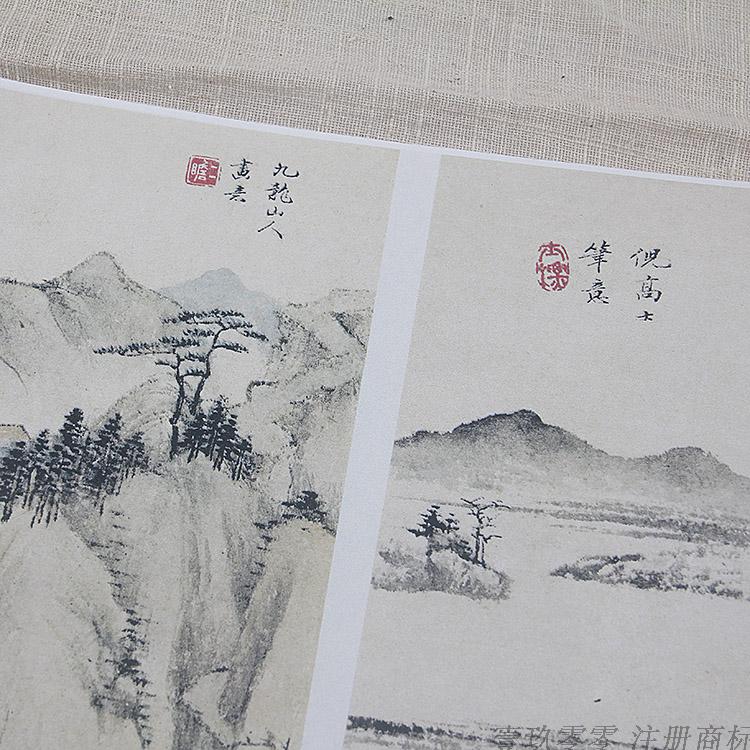 九龍山人
畫意
倪高士
筆意
壹玖零零 注册商标